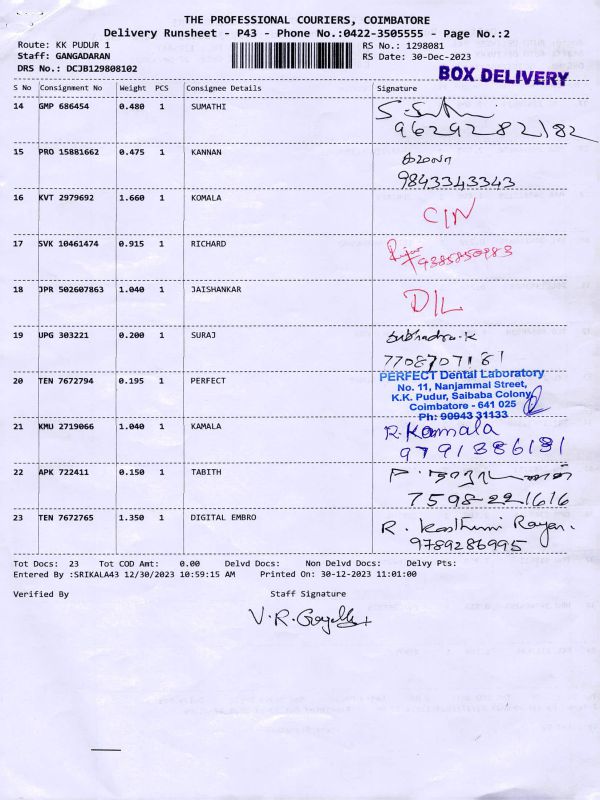 THE PROFESSIONAL COURIERS, COIMBATORE
Delivery Runsheet - P43 - Phone No.:0422-3505555 - Page No.:2
Route: KK PUDUR 1 RS No.: 1298081
Staff: GANGADARAN RS Date: 30-Dec-2023
DRS No.: DCJB129808102
BOX DELIVERY
S No Consignment No Weight PCS Consignee Details Signature
14 GMP 686454 0.480 1 SUMATHI
9629282182
15 PRO 15881662 0.475 1 KANNAN
9843343343
16 KVT 2979692 1.660 1 KOMALA C/N
17 SVK 10461474 0.915 1 RICHARD
9385850983
18 JPR 502607863 1.040 1 JAISHANKAR D/L
19 UPG 303221 0.200 1 SURAJ Subhadra.K
7708707181
20 TEN 7672794 0.195 1 PERFECT
PERFECT Dental Laboratory
No. 11, Nanjammal Street,
K.K. Pudur, Saibaba Colony
Coimbatore - 641 025
Ph: 90943 31133
21 KMU 2719066 1.040 1 KAMALA R.Kamala
9791386131
22 APK 722411 0.150 1 TABITH
7598221616
23 TEN 7672765 1.350 1 DIGITAL EMBRO R.
9789286995
Tot Docs: 23 Tot COD Amt: 0.00 Delvd Docs: Non Delvd Docs: Delvy Pts:
Entered By :SRIKALA43 12/30/2023 10:59:15 AM Printed On: 30-12-2023 11:01:00
Verified By Staff Signature